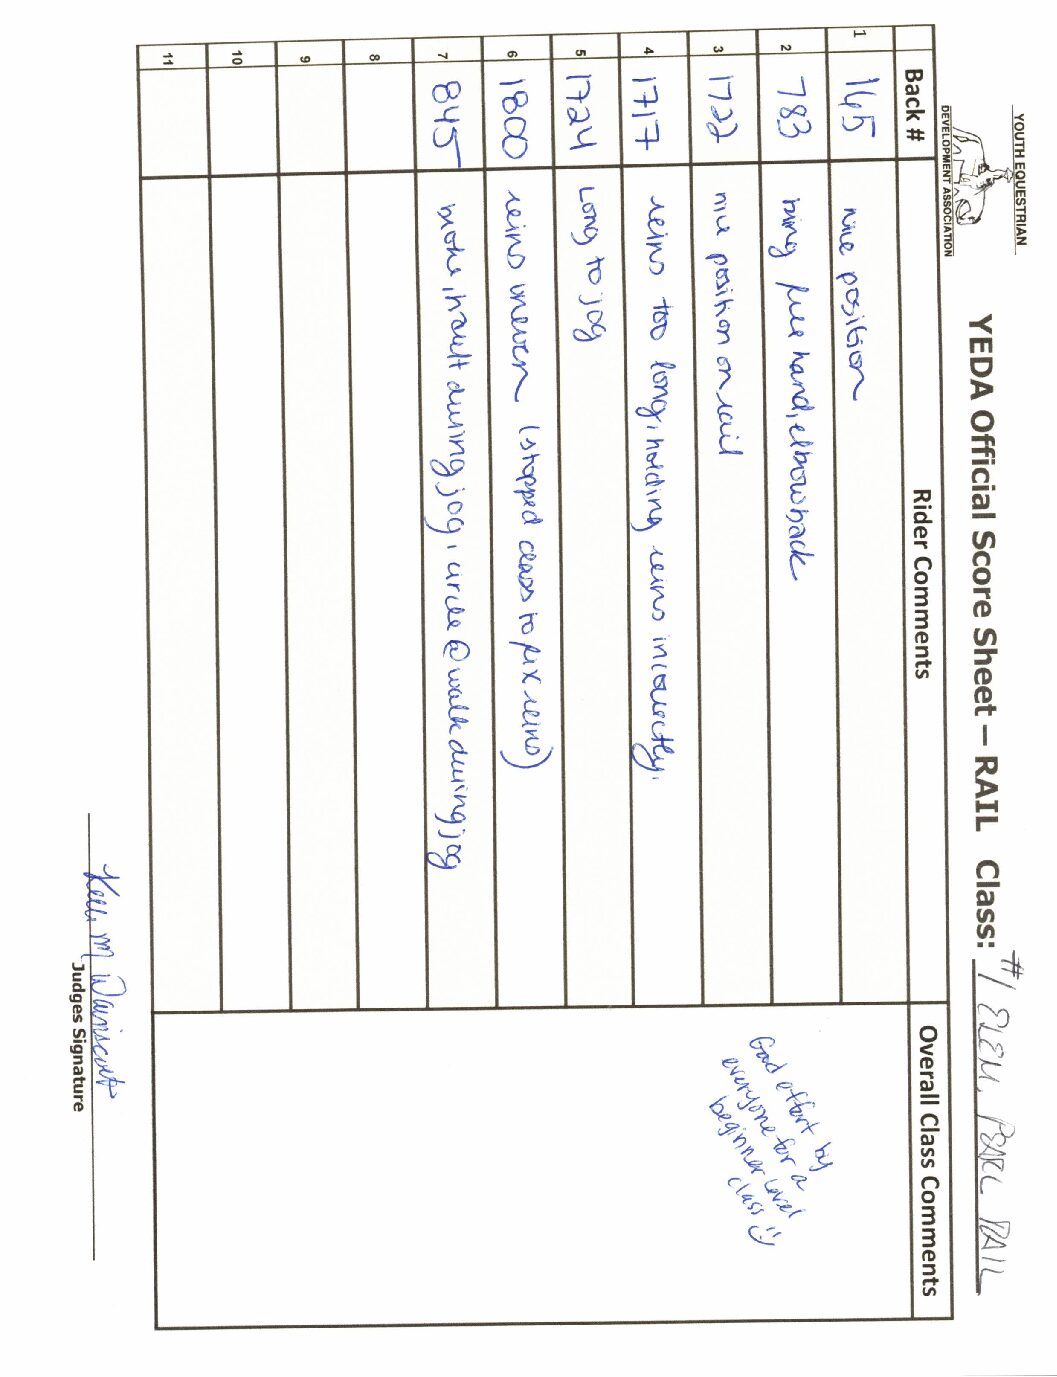 YOUTH EQUESTRIAN
DEVELOPMENT ASSOCIATION
YEDA Official Score Sheet – RAIL Class: #1 ELEM. PEARL RAIL
Back # Rider Comments Overall Class Comments
1 165 nice position
2 783 bring free hand, elbow back
3 1722 nice position on rail
4 1717 reins too long, holding reins incorrectly.
5 1724 Long to jog
6 1800 reins uneven (stopped class to fix reins)
7 845 broke, hault during jog, circle @ walk during jog
8
9
10
11
Good effort by
everyone for a
beginner level
class :)
Kelli M Wainscott
Judges Signature